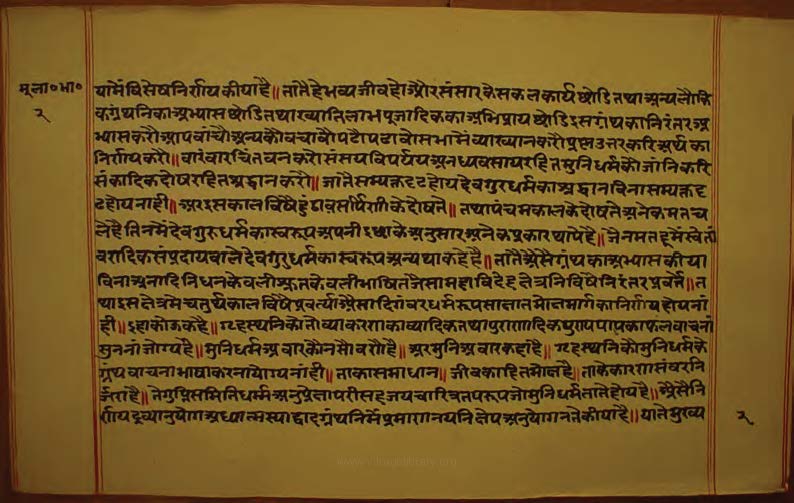 मूला०भा०
२
यामैंविसेषनिर्णयकीयाहै॥तातैंहेभव्यजीवहोऔरसंसारकेसकलकार्यछोडितथाअन्यलौकि
कग्रंथनिकाअभ्यासछोडितथाख्यातिलाभपूजादिककाअभिप्रायछोडिइसग्रंथकानिरंतरअ
भ्यासकरौआपवांचौअन्यकौवचावौपढौपढावोसभामैंव्याख्यानकरौप्रश्नउत्तरकरिअर्थका
निर्णयकरौ॥वारंवारचिंतवनकरोसंसयविपर्ययअनध्यवसायरहितमुनिधर्मकौजांनिकरि
संकादिकदोषरहितश्रद्धानकरौ॥जातैसम्यक्तदृढहोयदेवगुरधर्मकाश्रद्धानविनासम्यक्तदृ
ढहोयनाही॥अरइसकालविषैहुंडावसर्पिणीकेदोषतै॥तथापंचमकालकेदोषतेअनेकमतच
लेहैतिनमेंदेवगुरुधर्मकास्वरूपअपनीइछाकेअनुसारअनेकप्रकारथापेहै॥जैनमतहूमेंस्वेतां
वरादिकसंप्रदायवालेदेवगुरुधर्मकास्वरूपअन्यथाकहेहै॥तातैंअैसैग्रंथकाअभ्यासकीया
विनाअनादिनिधनकेवलीश्रुतकेवलीभाषितजैसामहाविदेहक्षेत्रनिविषैनिरंतरप्रवर्तै॥त
थाइसक्षेत्रमेंचतुर्थकालविषैप्रवर्त्याअैसादिगंवरधर्मरूपसाक्षातमोक्षमार्गकानिर्णयहोयनां
ही॥इहाकोऊकहै॥गृहस्थनिकोतोव्याकरणकाव्यादिकतथापुराणादिकपुण्यपापकाफलवाचनां
सुननांजोग्यहै॥मुनिधर्मअवारकौनसौवरौहै॥अरमुनिअवारकहांहै॥गृहस्थनिकौमुनिधर्मके
ग्रंथवाचनाभाषाकरनायोग्यनांही॥ताकासमाधान॥जीवकाहितमोक्षहै॥ताकेकारणसंवरनि
र्जराहै॥तेगुप्तिसमितिधर्मअनुप्रेक्षापरीसहजयचारित्रतपरूपजोमुनिधर्मतातेहोयहै॥अैसैनि
र्णयद्रव्यानुयोगअध्यात्मस्याद्वादग्रंथनिमेंप्रमाणनयनिक्षेपअनुयोगनतेकीयाहै॥यातेमुख्य
२